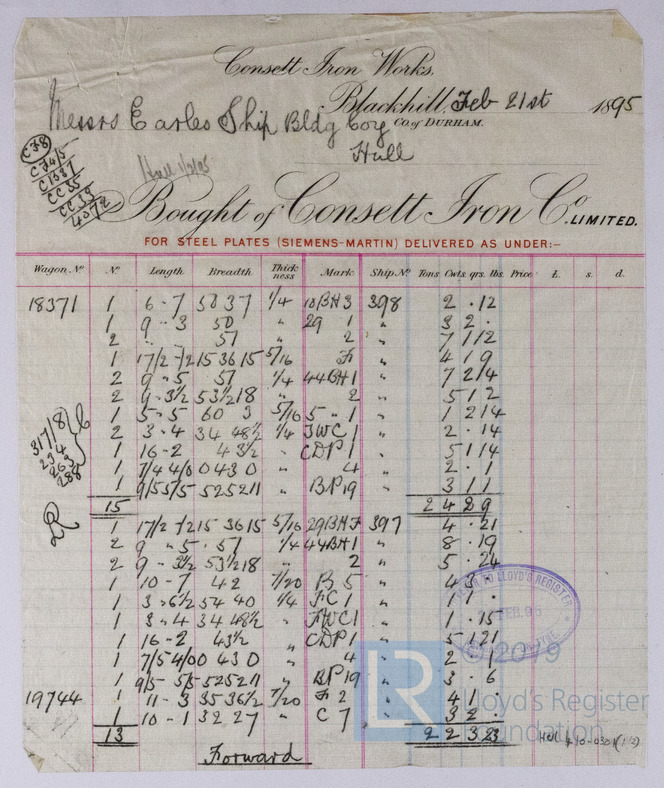 Consett Iron Works.
Blackhill, Feb 21st 1895
Co. of DURHAM.
Messrs Earles Ship Bldg Coy
Hull
C78
C74/5
C1387
CC35
CC39
4372
Bought of Consett Iron Co. LIMITED.
FOR STEEL PLATES (SIEMENS-MARTIN) DELIVERED AS UNDER:-
Wagon No. No. Length Breadth Thickness Mark Ship No. Tons Cwts. qrs. lbs. Price £. s. d.
18371 1 6-7 50 37 1/4 10BH3 398 2 . 12
1 9-3 50 " 29 1 " 3 2 .
2 " 51 " 2 " 7 1 12
1 17/2 -/2 15 36 15 5/16 F " 4 1 9
2 9 " 5 51 1/4 44BH1 " 7 2 14
2 9-3½ 53½ 18 " 2 " 5 1 2
1 5-5 60 3 5/16 5 " 1 " 1 2 14
2 3-4 34 48½ 1/4 FWC1 " 2 . 14
1 16-2 43½ " CDP1 " 5 1 14
1 7/4 4/0 0 43 0 " 4 " 2 . 1
1 9/5 5/5 52 52 11 " BP19 " 3 1 1
15 2 4 2 9
317/8
234
263
288
1 17/2 -/2 15 36 15 5/16 29BHF 397 4 . 21
2 9 " 5 . 51 1/4 44BH1 " 8 . 19
2 9 - 3½ 53½ 18 " 2 " 5 . 24
1 10-7 42 7/20 B5 " 4 3 .
1 3-6½ 54 40 1/4 FC1 " 1 1 .
1 3-4 34 48½ " FWC1 " 1 . 15
1 16-2 43½ " CDP1 " 5 1 21
1 7/5 4/0 0 43 0 " 4 " 2 . 1
1 9/5 5/5 52 52 11 " BP19 " 3 . 6
19744 1 11-3 35 36½ 7/20 F2 " 4 1 .
1 10-1 32 27 " C7 " 3 2 .
13 2 2 3 23
Forward
LLOYD'S REGISTER
FEB. 95
© 2019
LR
Lloyd's Register
Foundation